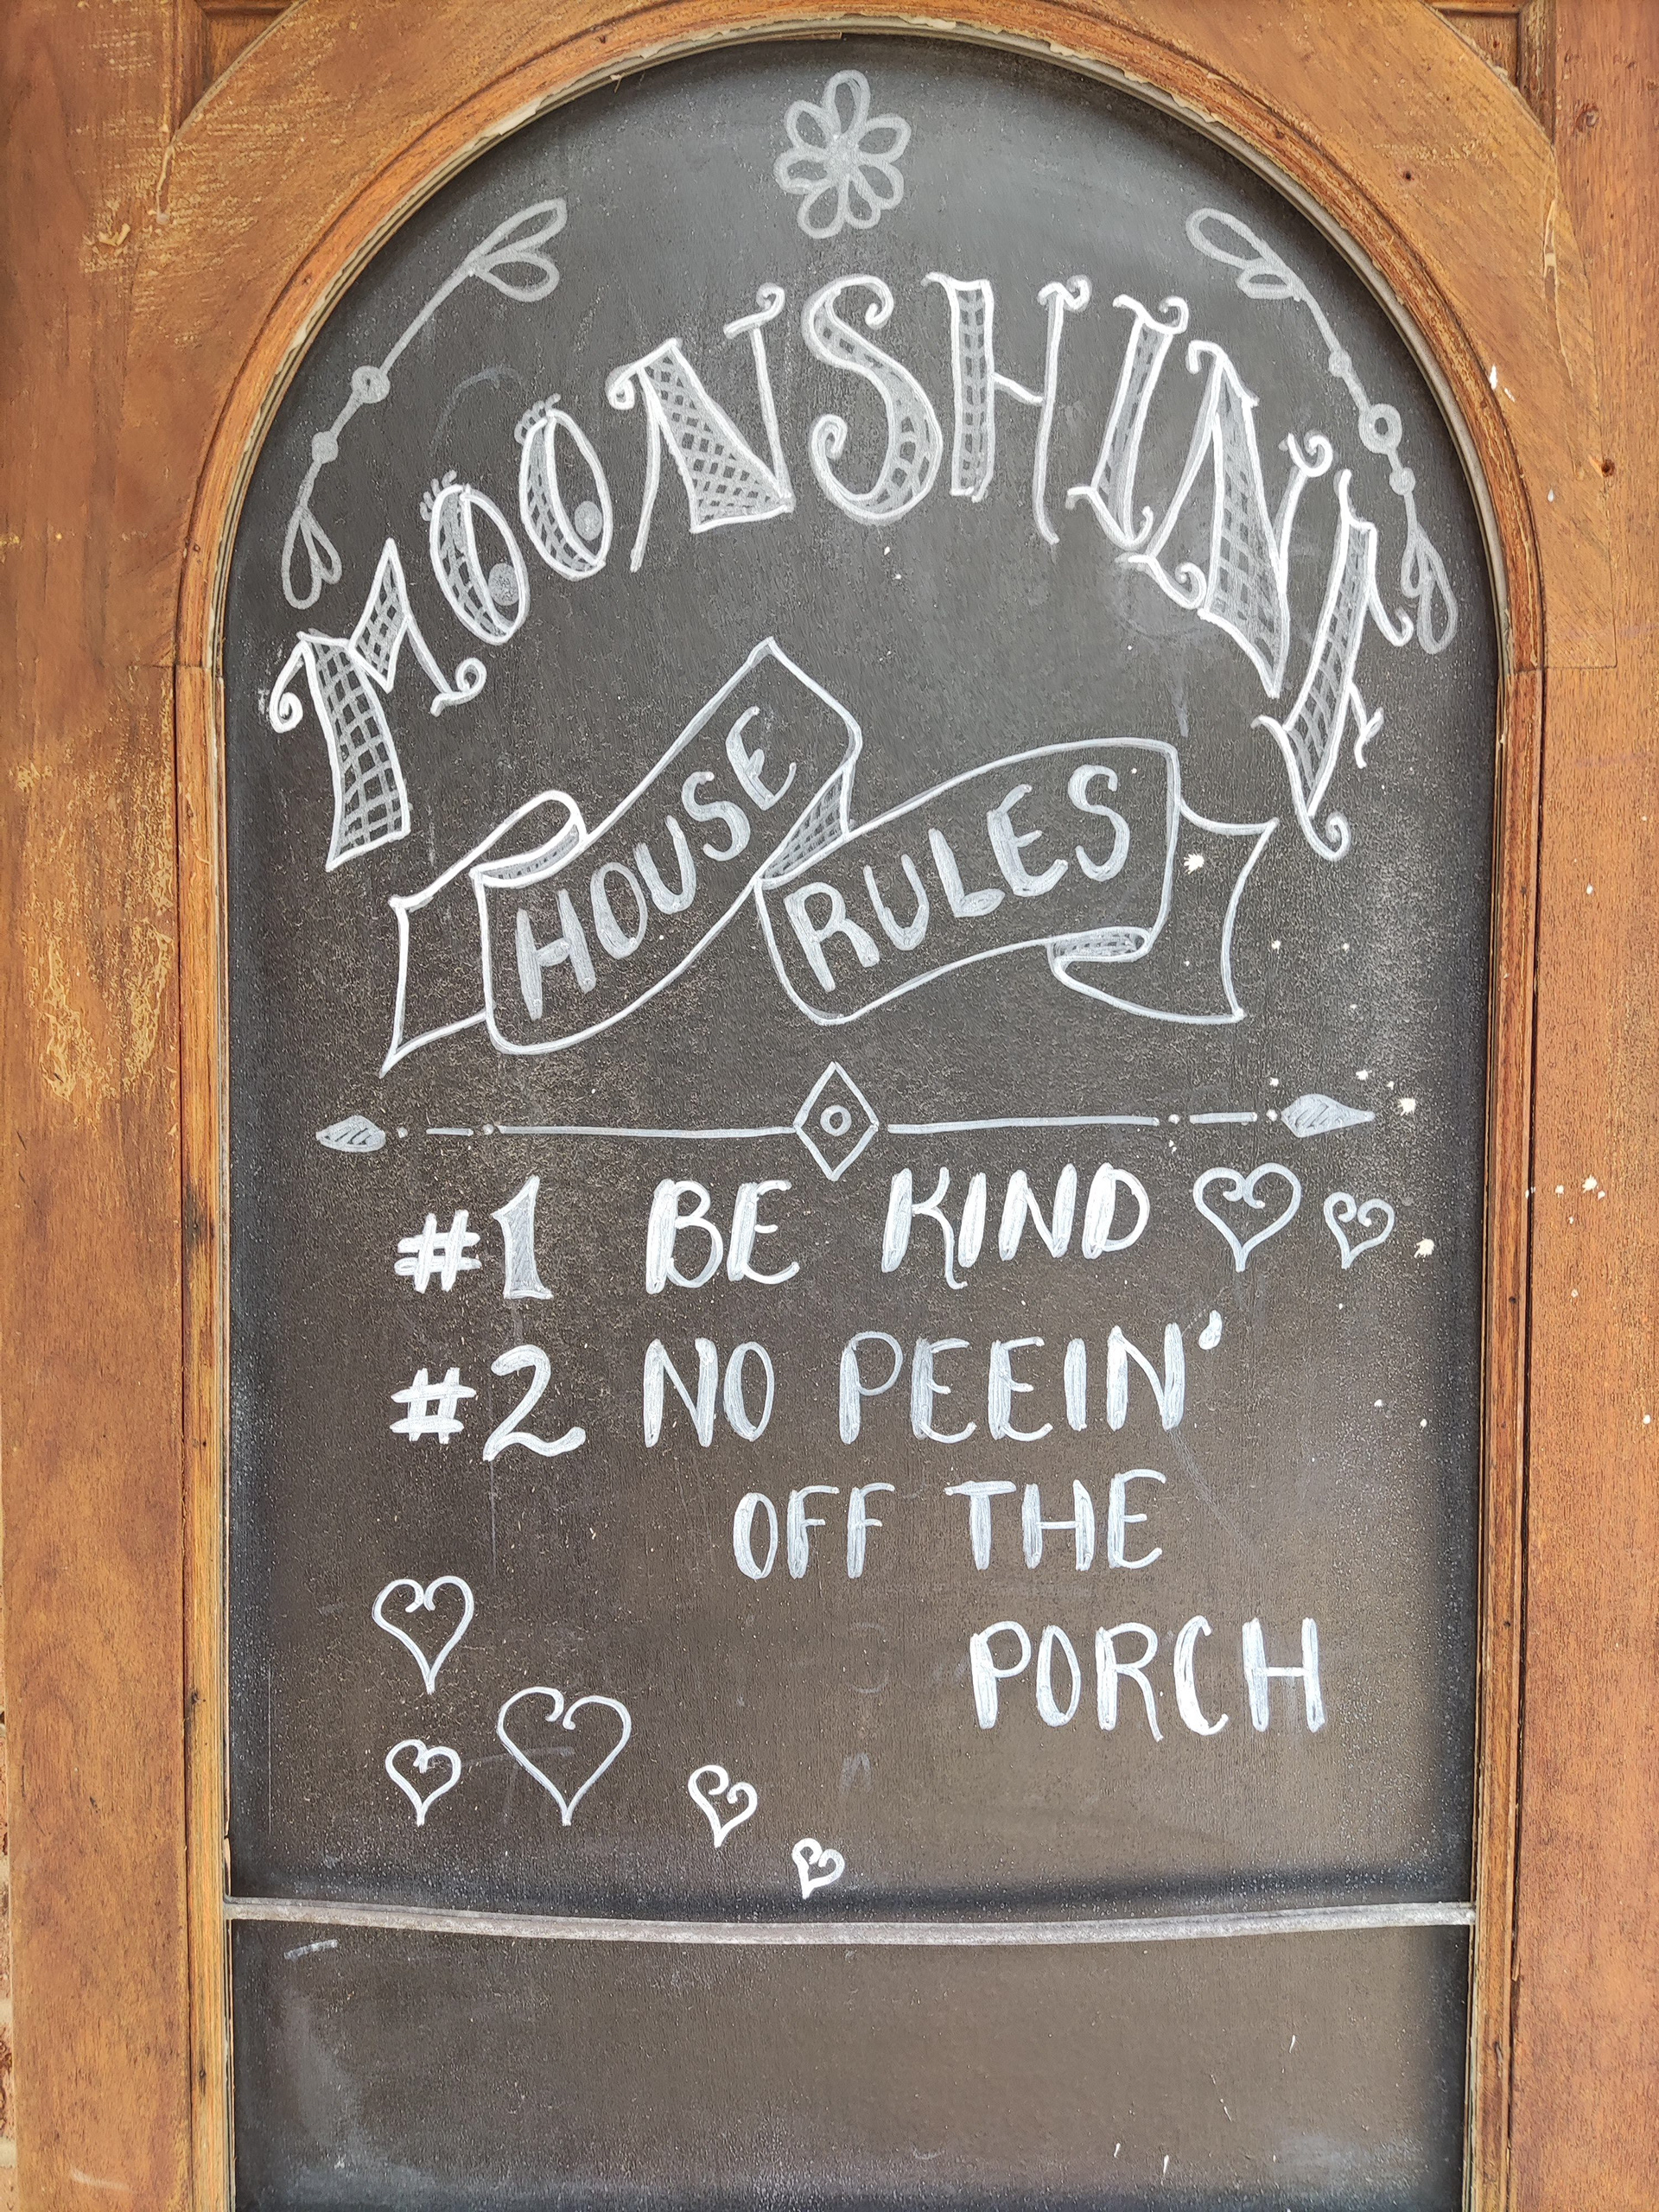 MOONSHINE
HOUSE RULES
#1 BE KIND
#2 NO PEEIN'
OFF THE
PORCH